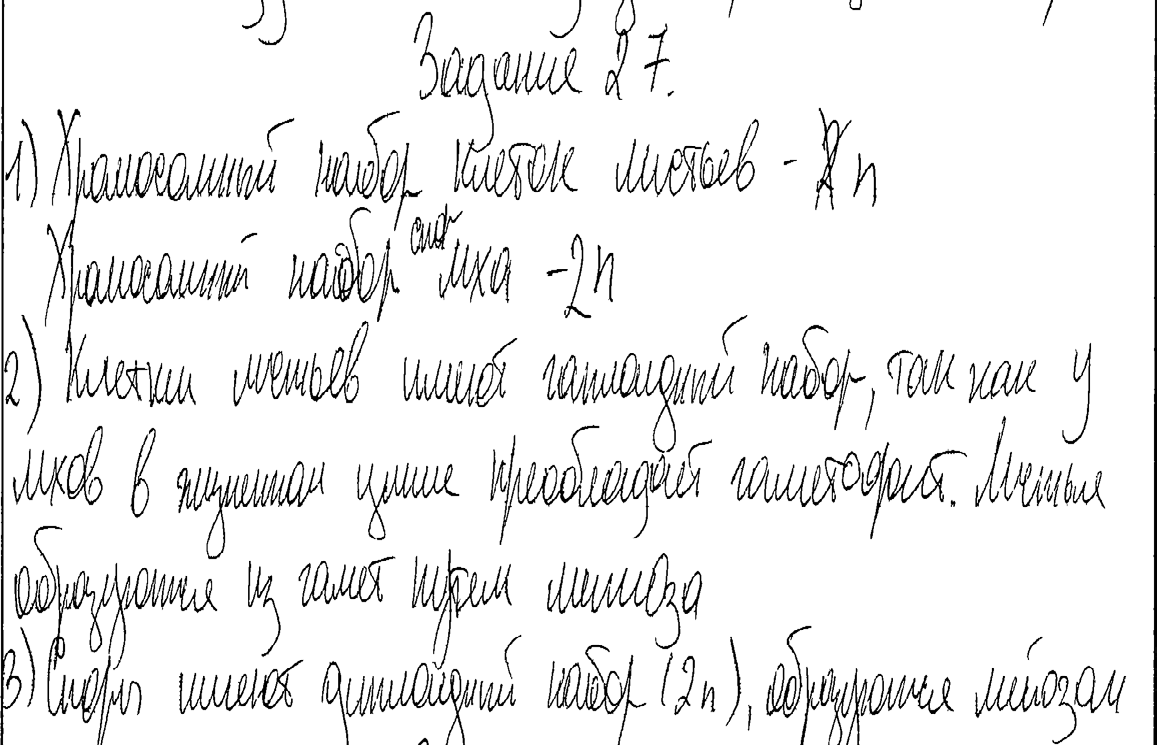 Задание 27.
1) Храмосомный набор клеток листьев - n
спор
Храмосомний набор мха - 2n
2) Клетки листьев имеют гаплоидный набор, так как у
мхов в жизненном цикле преобладает гаметофит. Листья
образуются из гамет путем митоза
3) Споры имеют диплоидный набор (2n), образуются мейозом